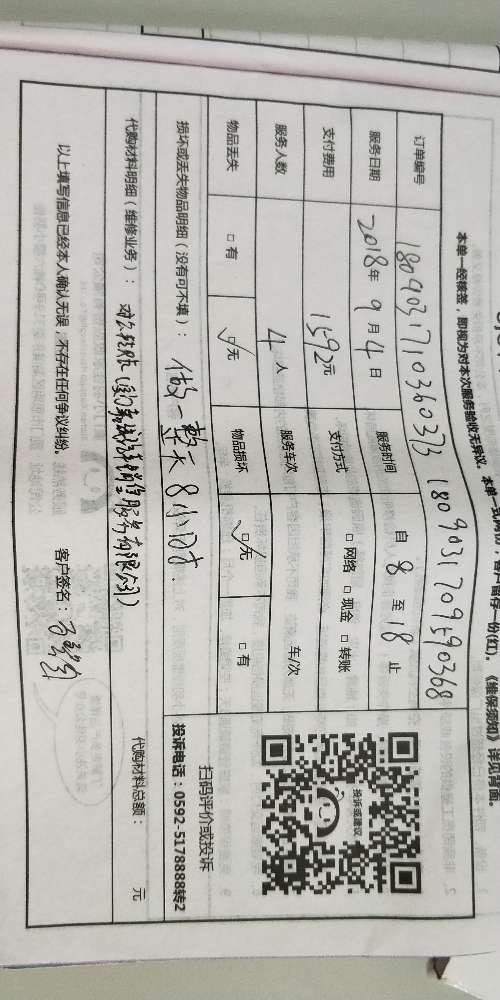 本单一经核签，即视为对本次服务验收无异议。本单一式两份，客户留存一份(红)。《维保须知》详见背面。
订单编号 1809031710360373 1809031709590368
服务日期 2018年9月4日 服务时间 自8至18止
支付费用 1592元 支付方式 □网络 □现金 □转账
服务人数 4人 服务车次 车/次
物品丢失 □有 ☑无 物品损坏 ☑无 □有
损坏或丢失物品明细（没有可不填）： 做一整天8小时.
代购材料明细（维修业务）： 对公转账 销售服务有限公司)
代购材料总额： 元
以上填写信息已经本人确认无误，不存在任何争议纠纷。 客户签名：
投诉或建议
扫码评价或投诉
投诉电话：0592-5178888转2